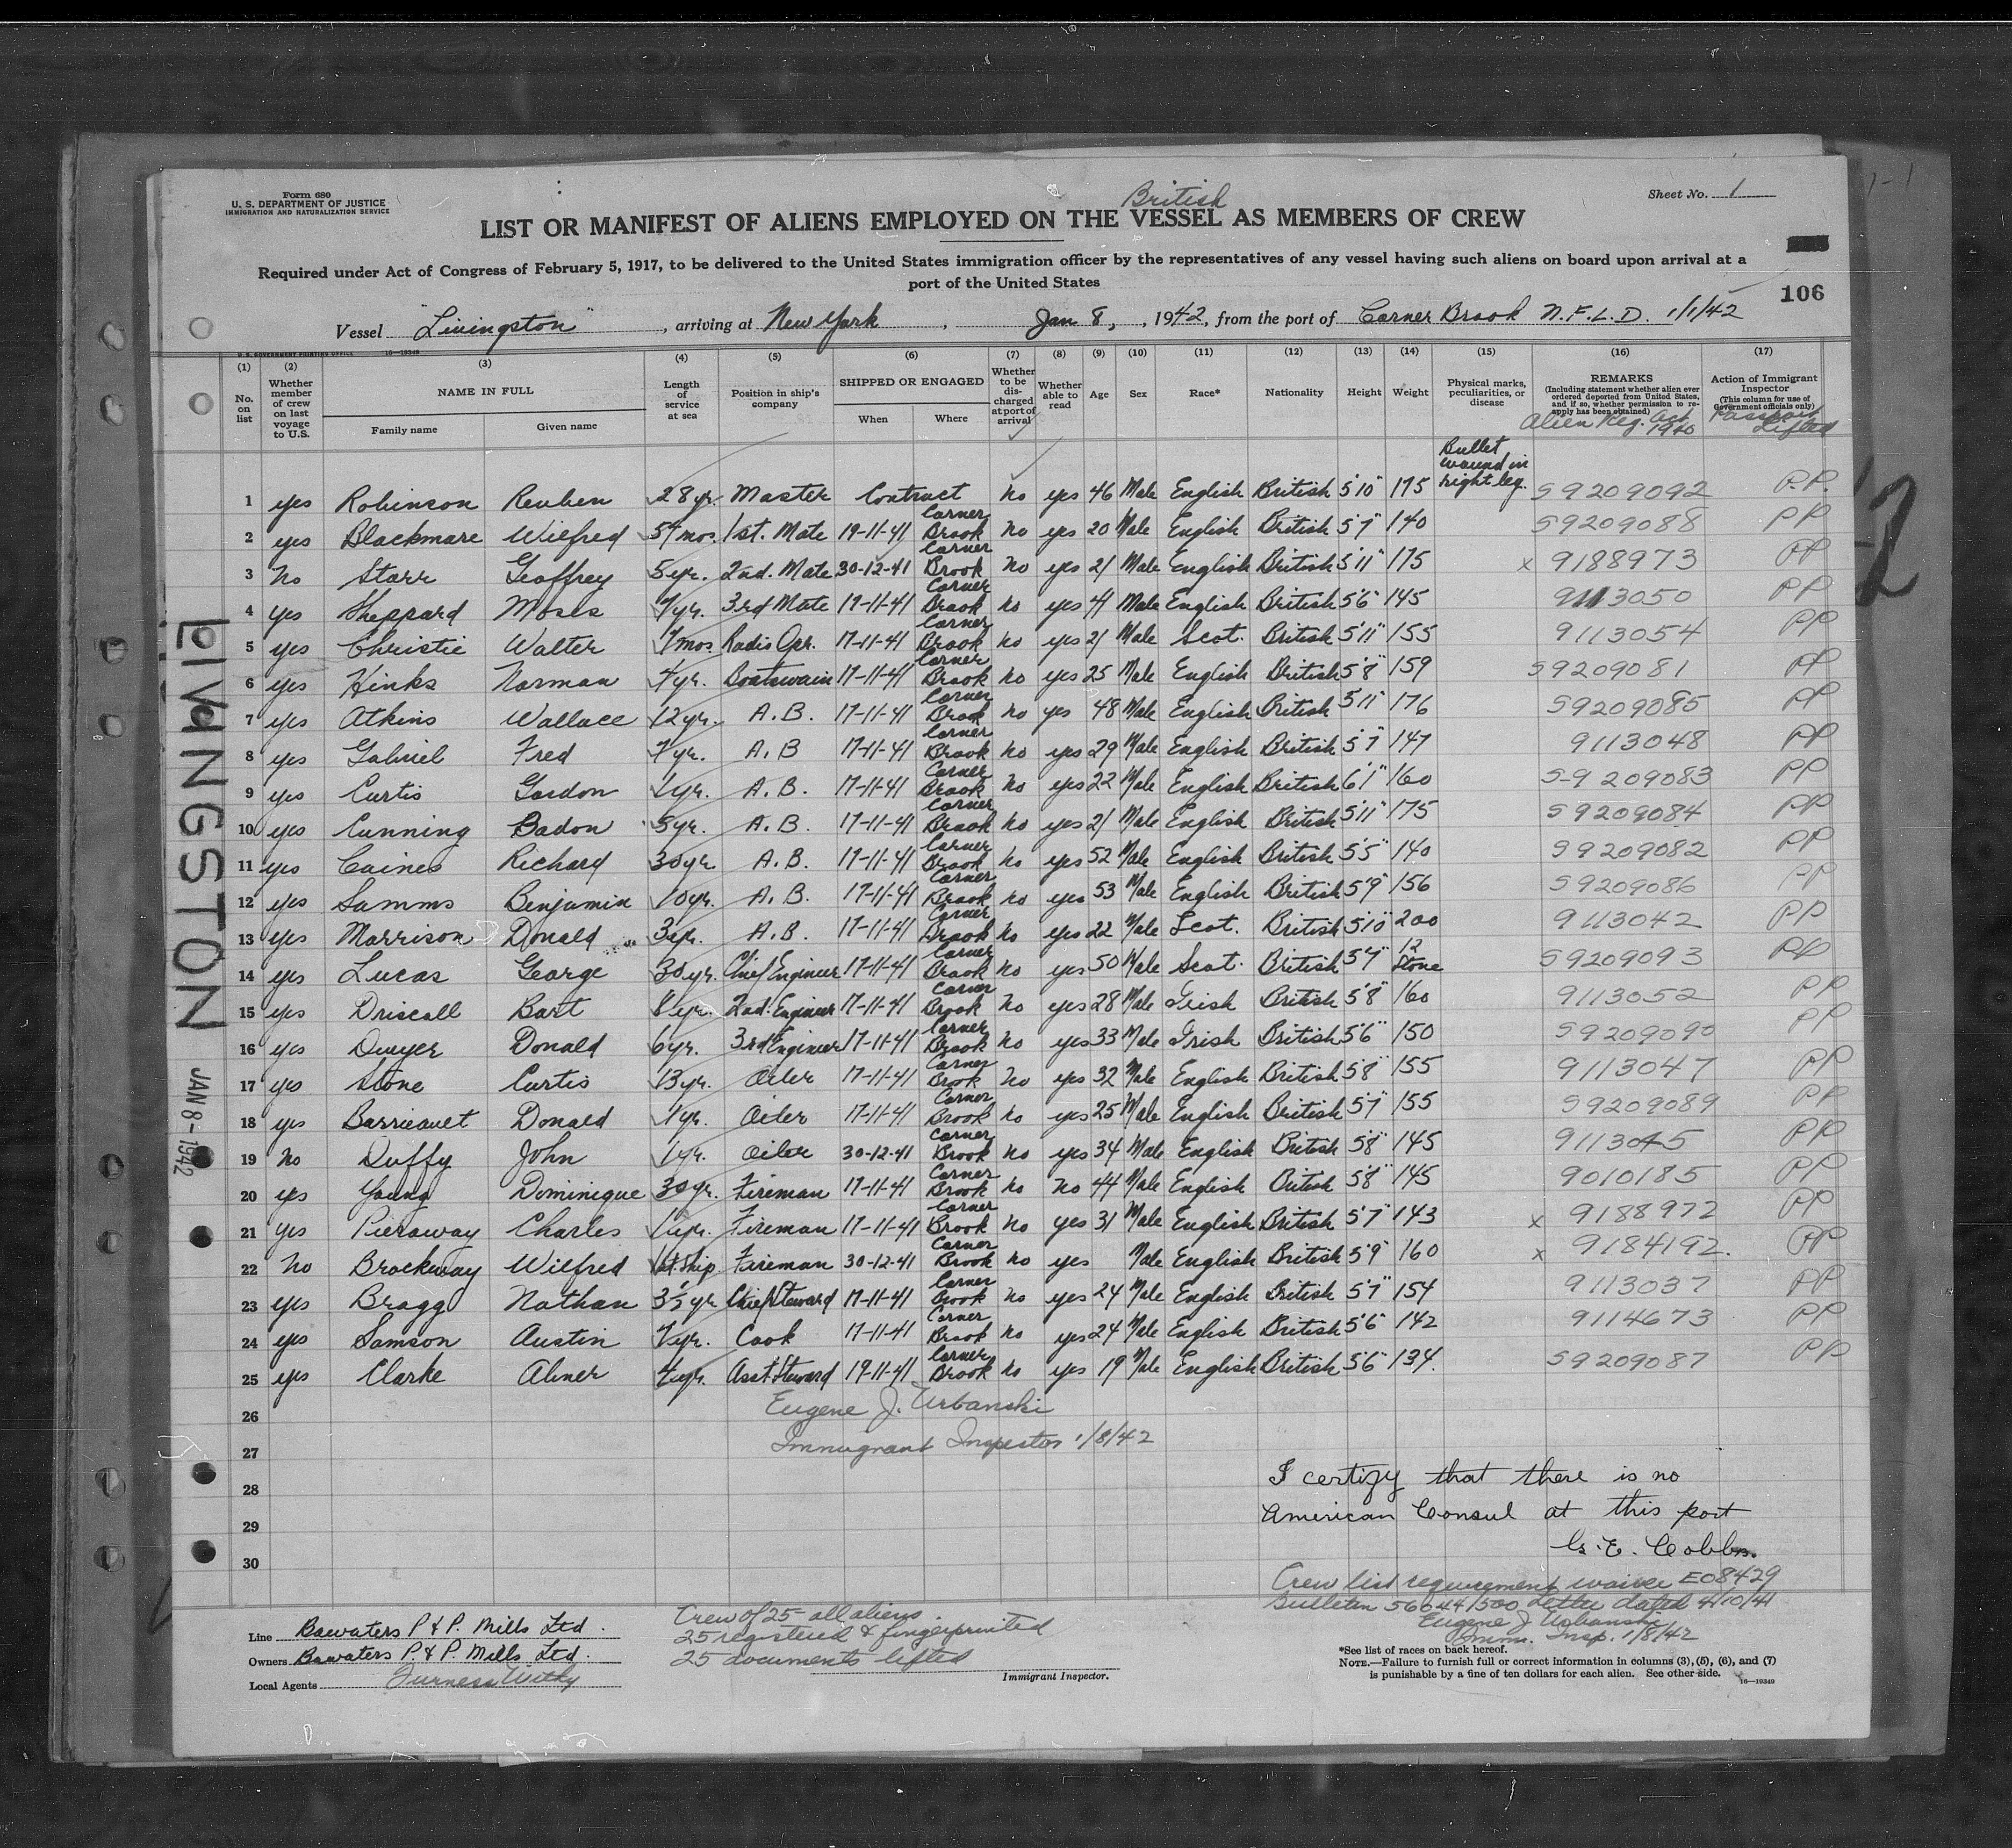 Form 680
U. S. DEPARTMENT OF JUSTICE
IMMIGRATION AND NATURALIZATION SERVICE
Sheet No. 1
British
LIST OR MANIFEST OF ALIENS EMPLOYED ON THE VESSEL AS MEMBERS OF CREW
Required under Act of Congress of February 5, 1917, to be delivered to the United States immigration officer by the representatives of any vessel having such aliens on board upon arrival at a
port of the United States
106
Vessel "Livingston", arriving at New York, Jan 8, 1942, from the port of Corner Brook N.F.L.D. 1/1/42
U. S. GOVERNMENT PRINTING OFFICE 16—19349
(1) (2) (3) (4) (5) (6) (7) (8) (9) (10) (11) (12) (13) (14) (15) (16) (17)
No. on list
Whether member of crew on last voyage to U.S.
NAME IN FULL
Family name Given name
Length of service at sea
Position in ship's company
SHIPPED OR ENGAGED
When Where
Whether to be discharged at port of arrival
Whether able to read
Age
Sex
Race*
Nationality
Height
Weight
Physical marks, peculiarities, or disease
REMARKS
(Including statement whether alien ever ordered deported from United States, and if so, whether permission to reapply has been obtained)
Alien Reg. Act 1940
Action of Immigrant Inspector
(This column for use of Government officials only)
Passport Lifted
1 yes Robinson Reuben 28 yr. Master Contract no yes 46 Male English British 5'10" 175 Bullet wound in right leg. 59209092 P.P.
2 yes Blackmore Wilfred 5 mos. 1st. Mate 19-11-41 Corner Brook no yes 20 Male English British 5'7" 140 59209088 PP
3 No Starr Geoffrey 5 yr. 2nd. Mate 30-12-41 Corner Brook no yes 21 Male English British 5'11" 175 x 9188973 PP
4 yes Sheppard Moses yr. 3rd Mate 17-11-41 Corner Brook no yes 41 Male English British 5'6" 145 9113050 PP
5 yes Christie Walter mos. Radio Opr. 17-11-41 Corner Brook no yes 21 Male Scot. British 5'11" 155 9113054 PP
6 yes Hinks Norman 4 yr. Boatswain 17-11-41 Corner Brook no yes 25 Male English British 5'8" 159 59209081 PP
7 yes Atkins Wallace 12 yr. A.B. 17-11-41 Corner Brook no yes 48 Male English British 5'11" 176 59209085 PP
8 yes Gabriel Fred yr. A.B 17-11-41 Corner Brook no yes 29 Male English British 5'7" 147 9113048 PP
9 yes Curtis Gordon 1 yr. A.B. 17-11-41 Corner Brook no yes 22 Male English British 6'1" 160 5-9 209083 PP
10 yes Cunning Badon 5 yr. A.B. 17-11-41 Corner Brook no yes 21 Male English British 5'11" 175 59209084 PP
11 yes Caines Richard 30 yr. A.B. 17-11-41 Corner Brook no yes 52 Male English British 5'5" 140 59209082 PP
12 yes Samms Benjamin 10 yr. A.B. 17-11-41 Corner Brook no yes 53 Male English British 5'9" 156 59209086 PP
13 yes Morrison Donald 3 yr. A.B. 17-11-41 Corner Brook no yes 22 Male Scot. British 5'10" 200 9113042 PP
14 yes Lucas George 30 yr. Chief Engineer 17-11-41 Corner Brook no yes 50 Male Scot. British 5'7" 12 Stone 59209093 PP
15 yes Driscoll Bart 8 yr. 2nd. Engineer 17-11-41 Corner Brook no yes 28 Male Irish British 5'8" 160 9113052 PP
16 yes Dwyer Donald 6 yr. 3rd Engineer 17-11-41 Corner Brook no yes 33 Male Irish British 5'6" 150 59209090 PP
17 yes Stone Curtis 13 yr. Oiler 17-11-41 Corner Brook no yes 32 Male English British 5'8" 155 9113047 PP
18 yes Barrieault Donald yr. Oiler 17-11-41 Corner Brook no yes 25 Male English British 5'7" 155 59209089 PP
19 No Duffy John 1 yr. Oiler 30-12-41 Corner Brook no yes 34 Male English British 5'8" 145 9113045 PP
20 yes Young Dominique 30 yr. Fireman 17-11-41 Corner Brook no no 44 Male English British 5'8" 145 9010185 PP
21 yes Pieroway Charles yr. Fireman 17-11-41 Corner Brook no yes 31 Male English British 5'7" 143 x 9188972 PP
22 No Brockway Wilfred 1st. Ship Fireman 30-12-41 Corner Brook no yes Male English British 5'9" 160 x 9184192. PP
23 yes Bragg Nathan 3½ yr Chief Steward 17-11-41 Corner Brook no yes 24 Male English British 5'7" 154 9113037 PP
24 yes Samson Austin yr. Cook 17-11-41 Corner Brook no yes 24 Male English British 5'6" 142 9114673 PP
25 yes Clarke Abner 4 yr. Asst. Steward 19-11-41 Corner Brook no yes 19 Male English British 5'6" 134. 59209087 PP
26
27
28
29
30
Eugene J. Urbanski
Immigrant Inspector 1/8/42
I certify that there is no
American Consul at this port
G. E. Cobb
Crew list requirement waive E08429
Bulletin 56044/500 Letter dated 4/10/41
Eugene J Urbanski
Imm. Insp. 1/8/42
Line Bowaters P. & P. Mills Ltd.
Owners Bowaters P. & P. Mills Ltd.
Local Agents Furness Withy
Crew of 25 all aliens.
25 registered & fingerprinted
25 documents lifted
Immigrant Inspector.
*See list of races on back hereof.
NOTE.—Failure to furnish full or correct information in columns (3), (5), (6), and (7)
is punishable by a fine of ten dollars for each alien. See other side.
16—19349
LIVINGSTON
JAN 8-1942
2